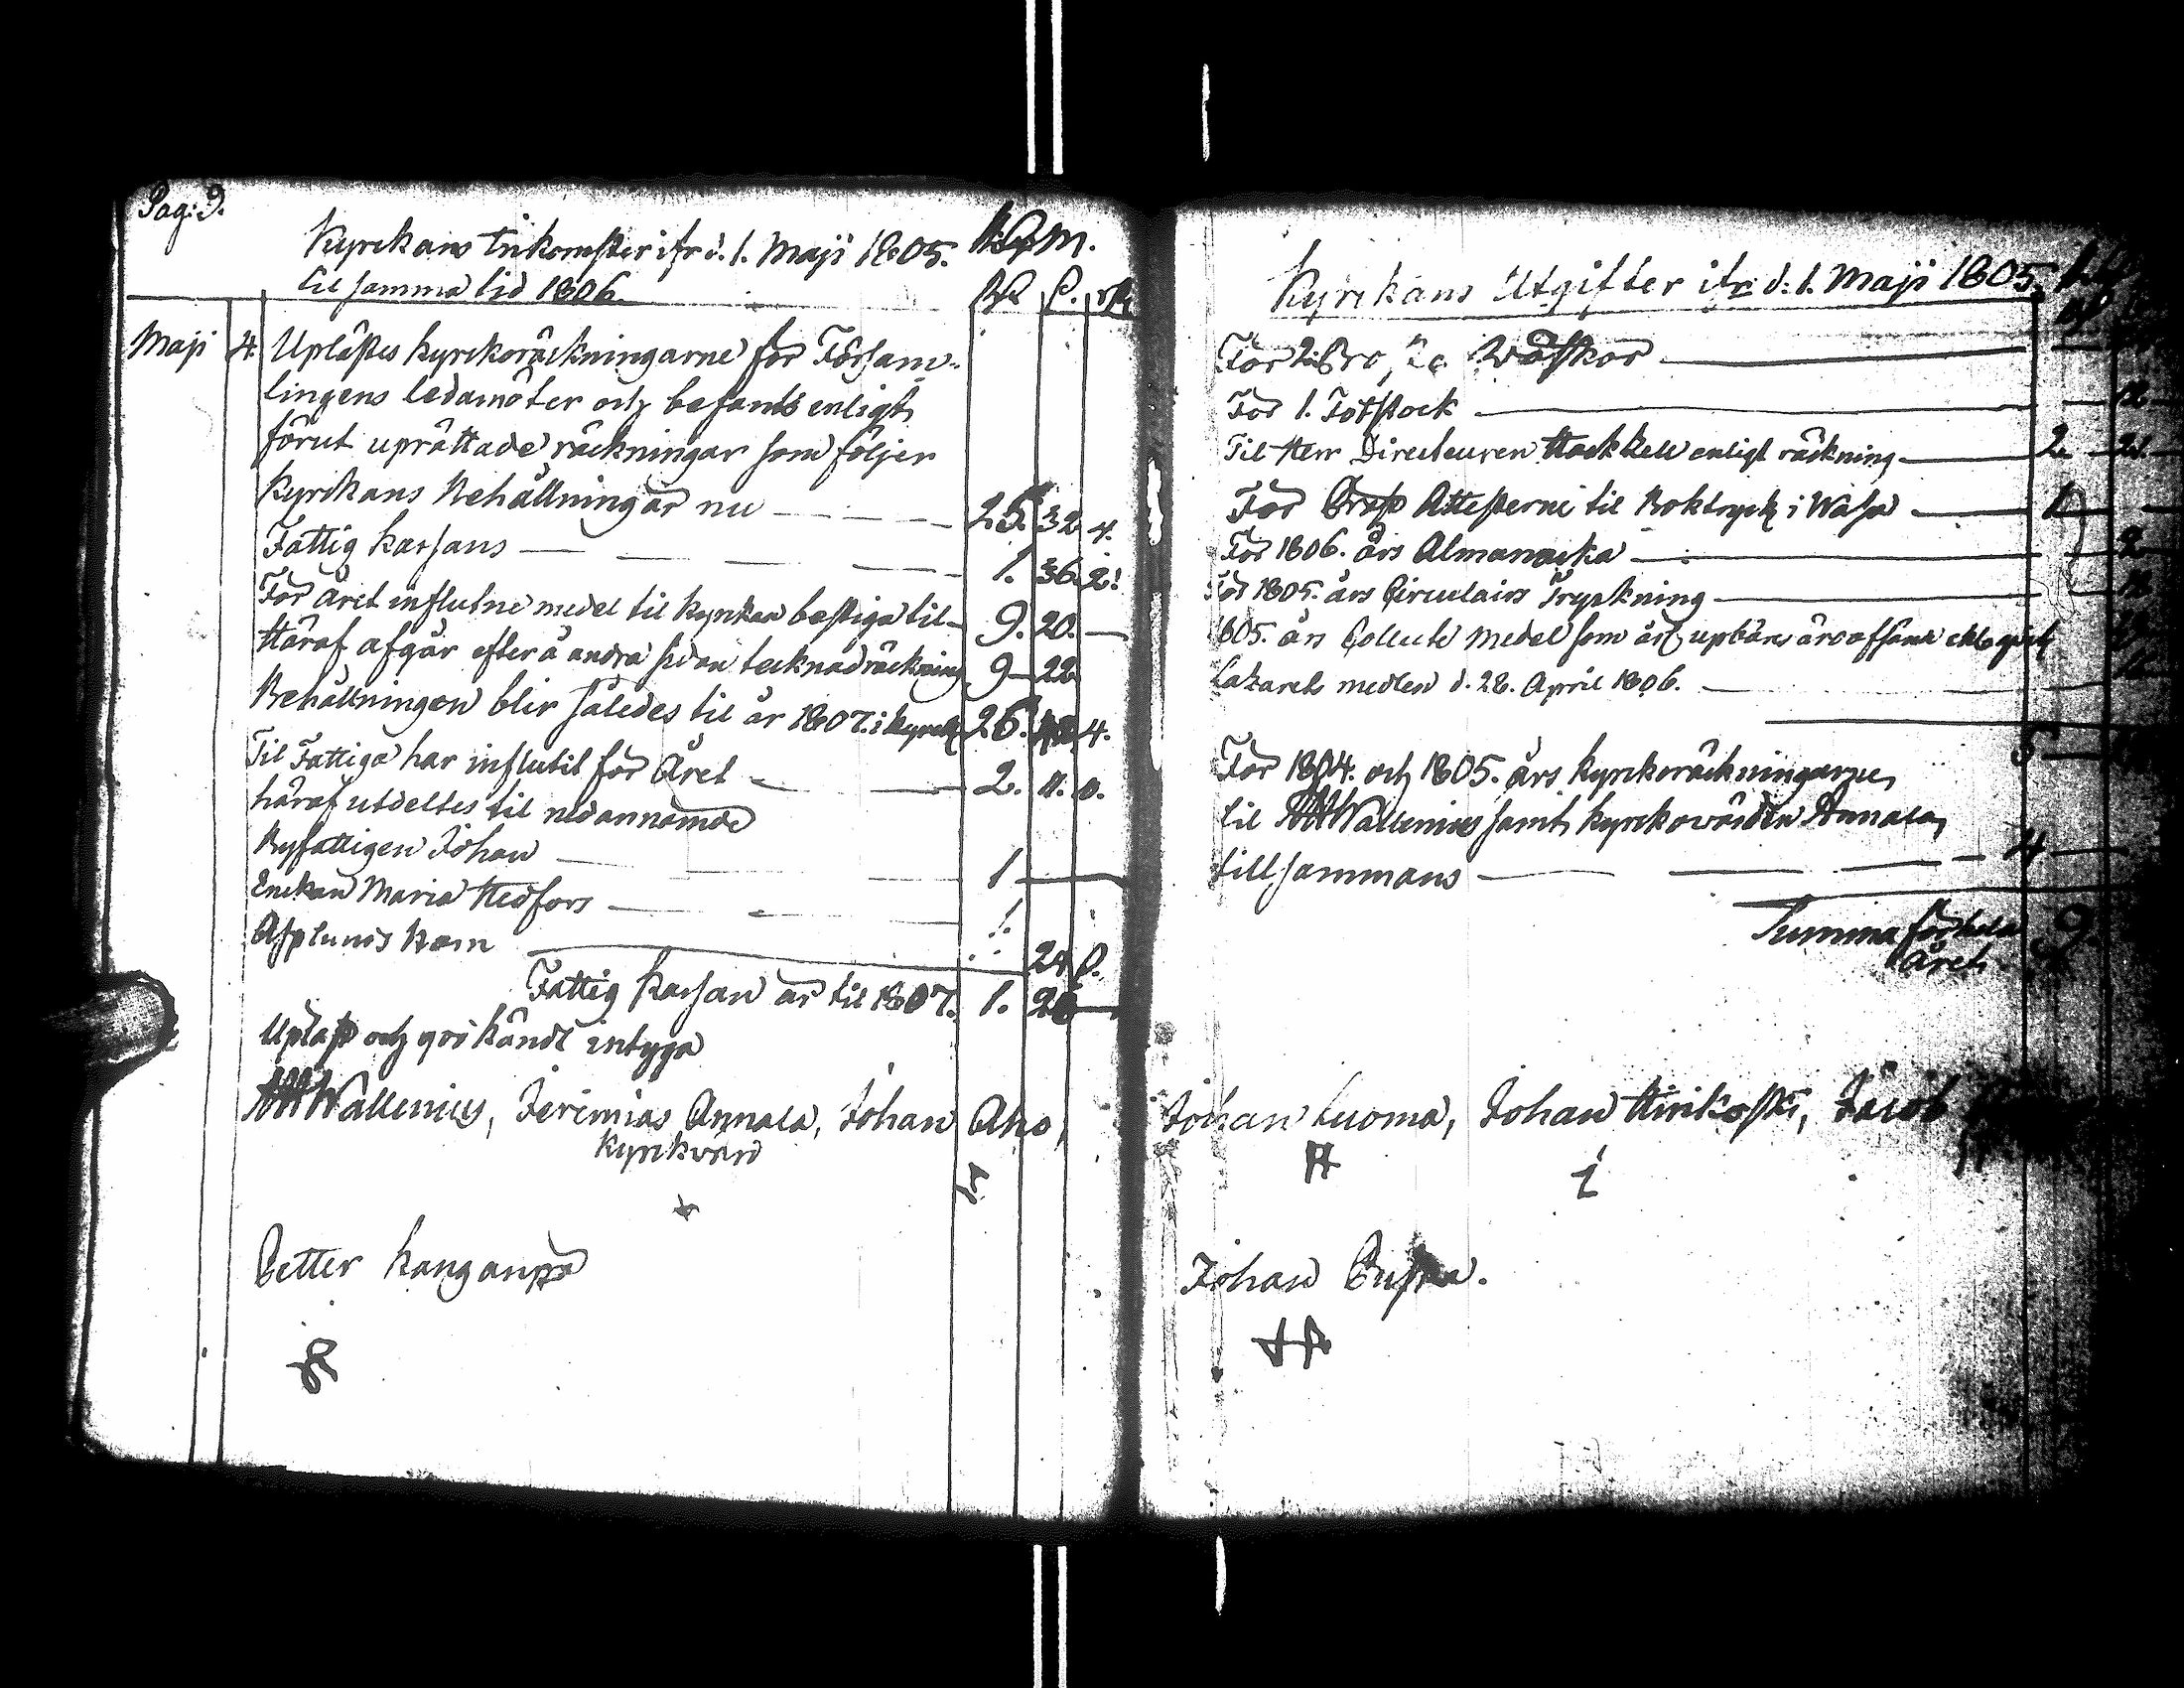 Pag: 9.
Kyrckans Inkomster ifr. d. 1. Maji 1805.
til samma tid 1806.
Maji 4. Uplästes kyrckoräckningarne för Församlingens
ledamöter och befants enligt
förut uprättade räckningar som följer
Kyrckans Behållning är nu 25. 32. 4.
Fattig Kassans 1. 36. 2.
För Året influtne medel til kyrckan bestiga til 9. 20. —
Häraf afgår efter å andra sidan tecknad räckning 9 — 22
Behållningen blir således til år 1807. i kyrck 4.
Til Fattiga har influtit för Året 2. 11. 0.
häraf utdeltes til nedannämde
Byfattigen Johan 1 —
Enckan Maria Hedfors 1.
Asplunds Barn 24
Fattig Kassan är til 1807. 1. 26 —
Upläst och godkändt intyga
Wallenius, Jeremias Annala, Johan Aho,
Kyrckvärd
Petter Kanganpä
Kyrckans Utgifter ifr. d. 1. Maji 1805.
För
För 1. Fotstock 12
Til Herr Directeuren Hackzell enligt räckning 2. 21.
För Attesterne til Boktryck i Wasa 1
För 1806. års Almanacka 2
För 1805. års Circulairs Tryckning 12
1805. års Collect Medel som
Lazarets medlen d. 28. April 1806.
5
För 1804. och 1805. års kyrckoräckningarne
til Wallenius samt kyrckovärden Annala,
tillsammans 4
Summa för hela 9.
Året.
Johan Luoma, Johan Hirikoski, Jacob
Johan